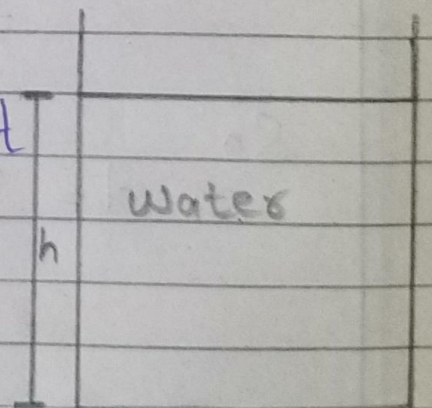 t
Water
h